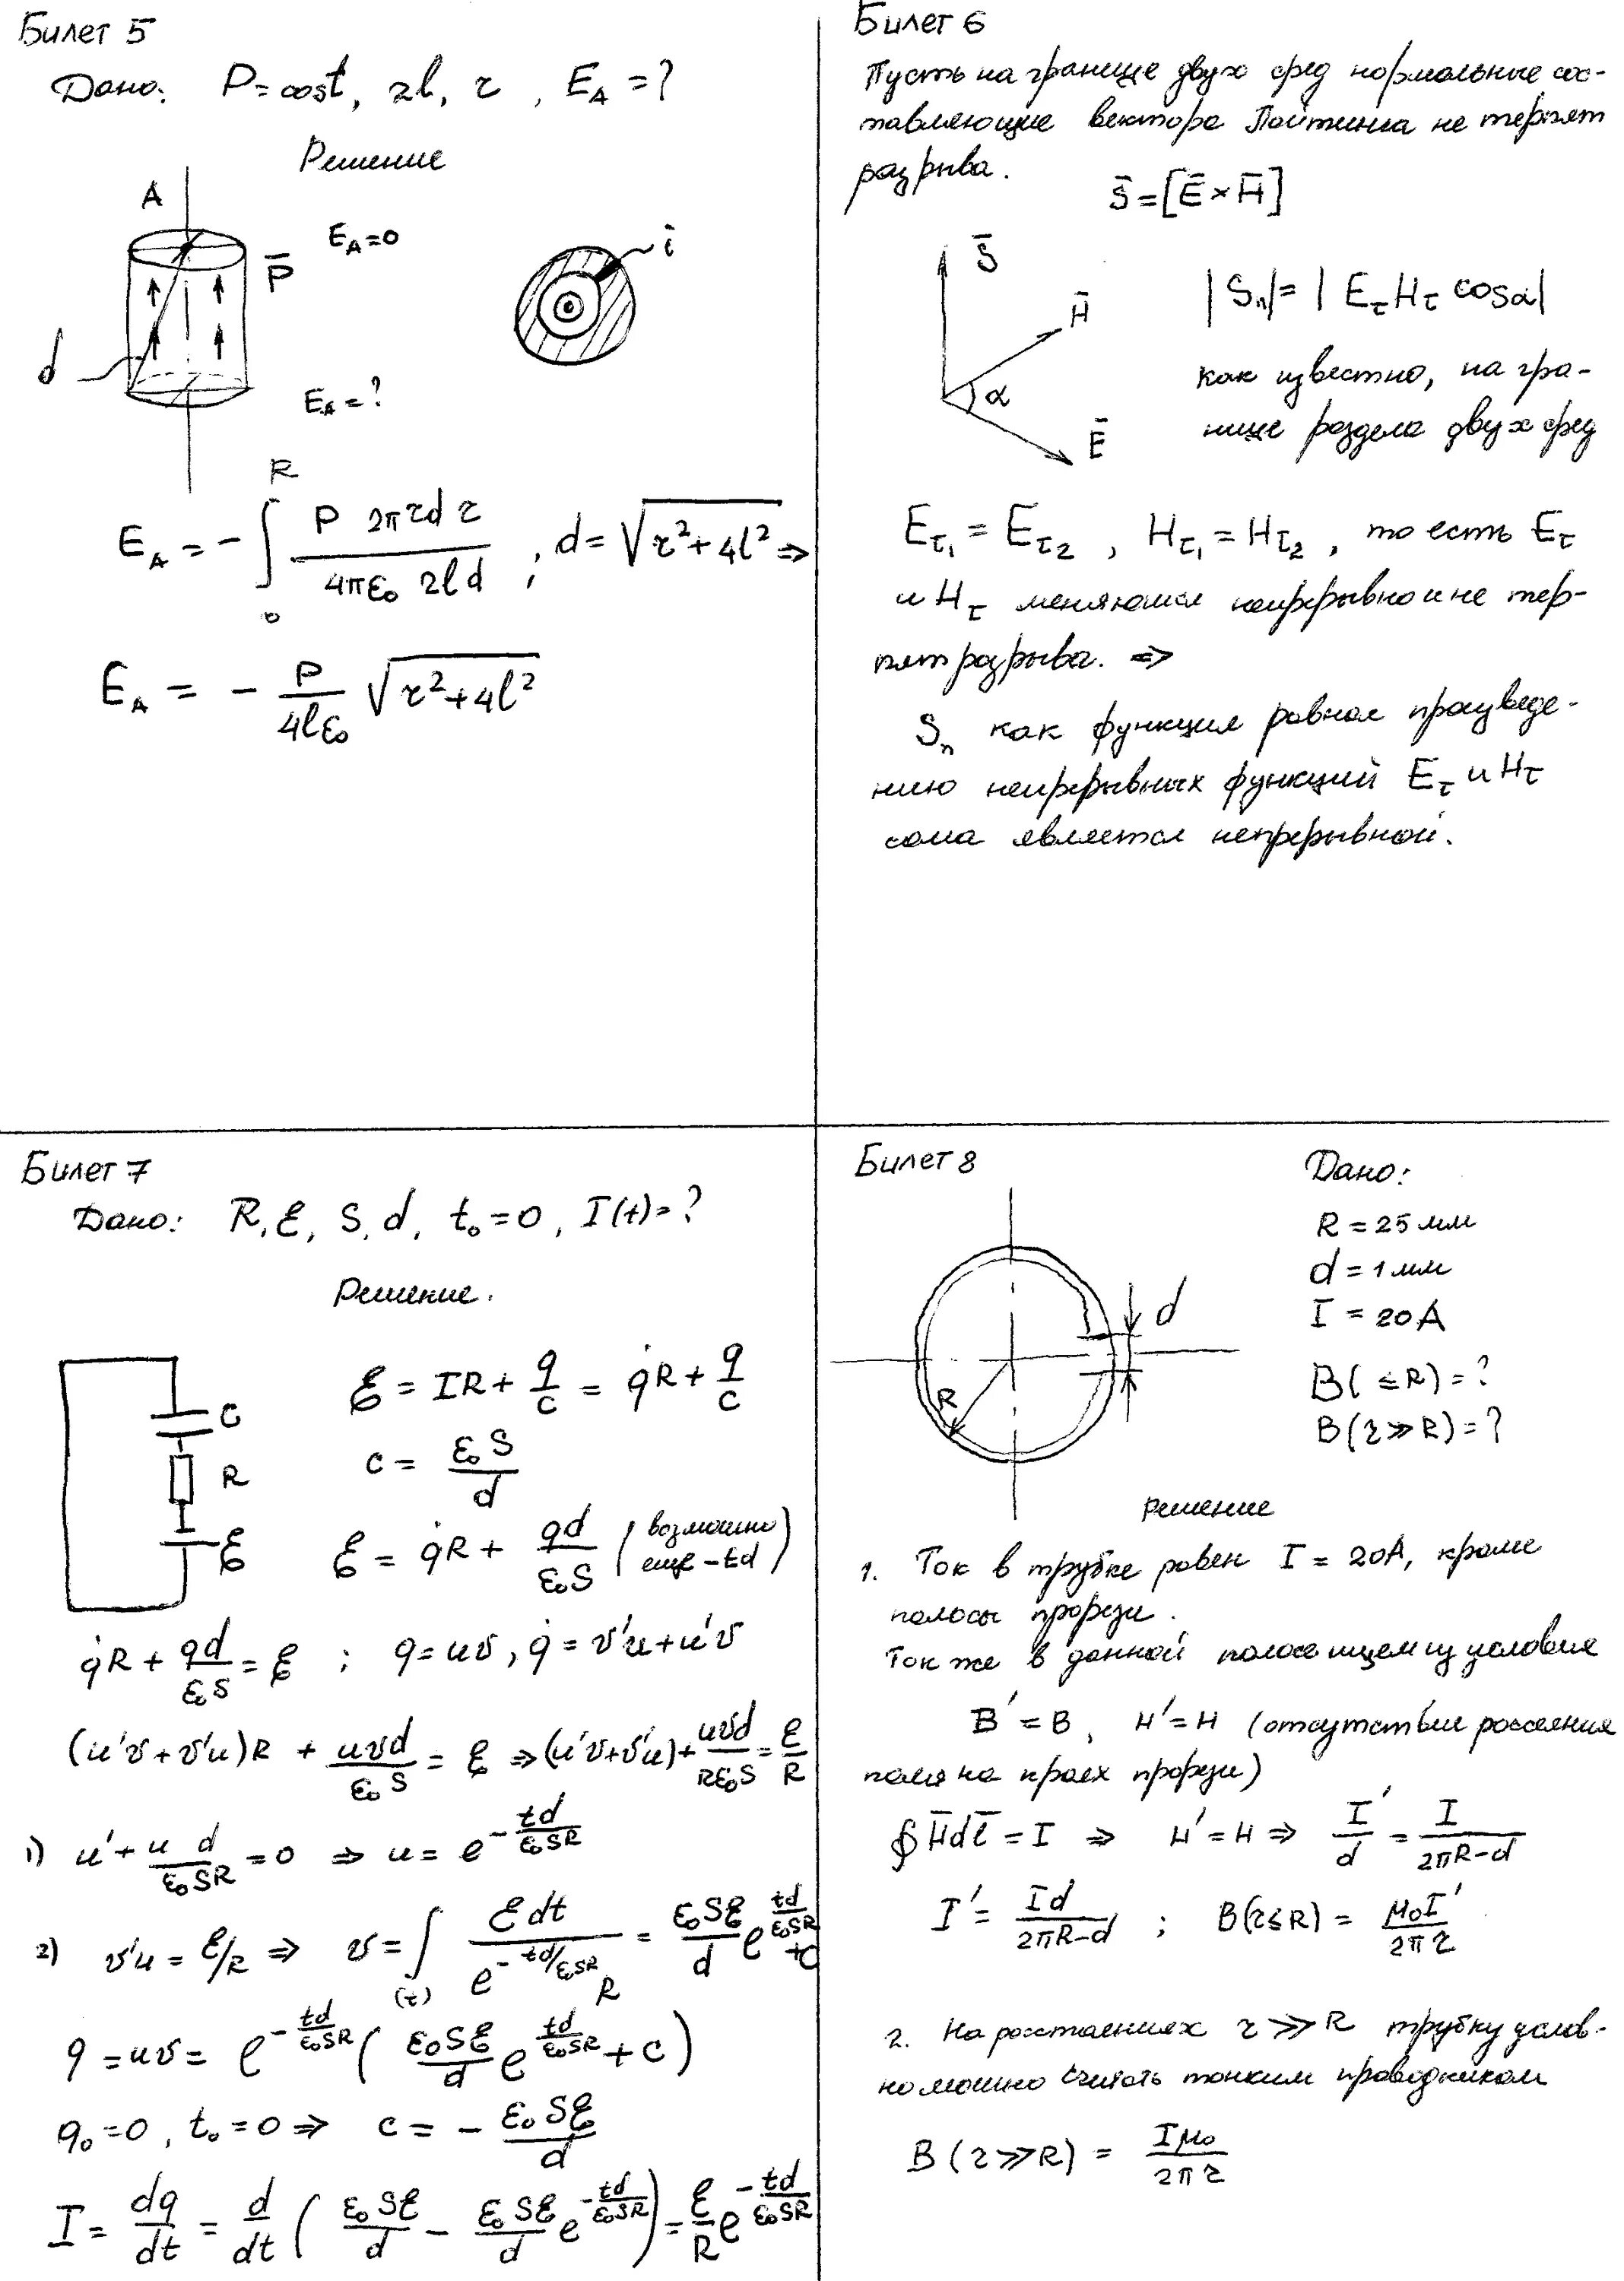 Билет 5
Дано: P=cost, 2l, r, E_A=?
Решение
A
E_A=0
P̄
ī
d
E_A=?
E_A = -∫₀^R P 2πrdr / 4πε₀ 2ld ; d=√(r²+4l²) ⇒
E_A = - P/4lε₀ √(r²+4l²)
Билет 6
Пусть на границе двух сред нормальные сос-
тавляющие вектора Пойтинга не терпят
разрыва.
S̄=[Ē×H̄]
S̄
H̄
α
Ē
|Sₙ|=|E_τ H_τ cosα|
как известно, на гра-
нице раздела двух сред
E_τ₁=E_τ₂, H_τ₁=H_τ₂, то есть E_τ
и H_τ меняются непрерывно и не тер-
пят разрыва. ⇒
Sₙ как функция равная произведе-
нию непрерывных функций E_τ и H_τ
сама является непрерывной.
Билет 7
Дано: R, ℰ, S, d, t₀=0, I(t)=?
Решение.
C
R
ℰ
ℰ = IR + q/c = q̇R + q/c
c = ε₀S/d
ℰ = q̇R + qd/ε₀S (возможно
еще -td)
q̇R + qd/ε₀S = ℰ ; q=uv, q̇=v'u+u'v
(u'v+v'u)R + uvd/ε₀S = ℰ ⇒ (u'v+v'u)+uvd/Rε₀S = ℰ/R
1) u'+ u d/ε₀SR = 0 ⇒ u = e^(-td/ε₀SR)
2) v'u = ℰ/R ⇒ v = ∫_(t) ℰdt / e^(-td/ε₀SR) R = ε₀Sℰ/d e^(td/ε₀SR) + C
q = uv = e^(-td/ε₀SR) ( ε₀Sℰ/d e^(td/ε₀SR) + c )
q₀=0, t₀=0 ⇒ c = - ε₀Sℰ/d
I = dq/dt = d/dt ( ε₀Sℰ/d - ε₀Sℰ/d e^(-td/ε₀SR) ) = ℰ/R e^(-td/ε₀SR)
Билет 8
Дано:
R = 25 мм
d = 1 мм
I = 20 А
B( ≤R)=?
B(r≫R)=?
d
R
Решение
1. Ток в трубке равен I = 20А, кроме
полосы прорези.
Ток же в данной полосе ищем из условия
B'=B, H'=H (отсутствие рассеяния
поля на краях прорези)
∮H̄dl̄=I ⇒ H'=H ⇒ I'/d = I/2πR-d
I' = Id/2πR-d ; B(r≤R) = μ₀I'/2πr
2. На расстояниях r≫R трубку услов-
но можно считать тонким проводником
B(r≫R) = Iμ₀/2πr